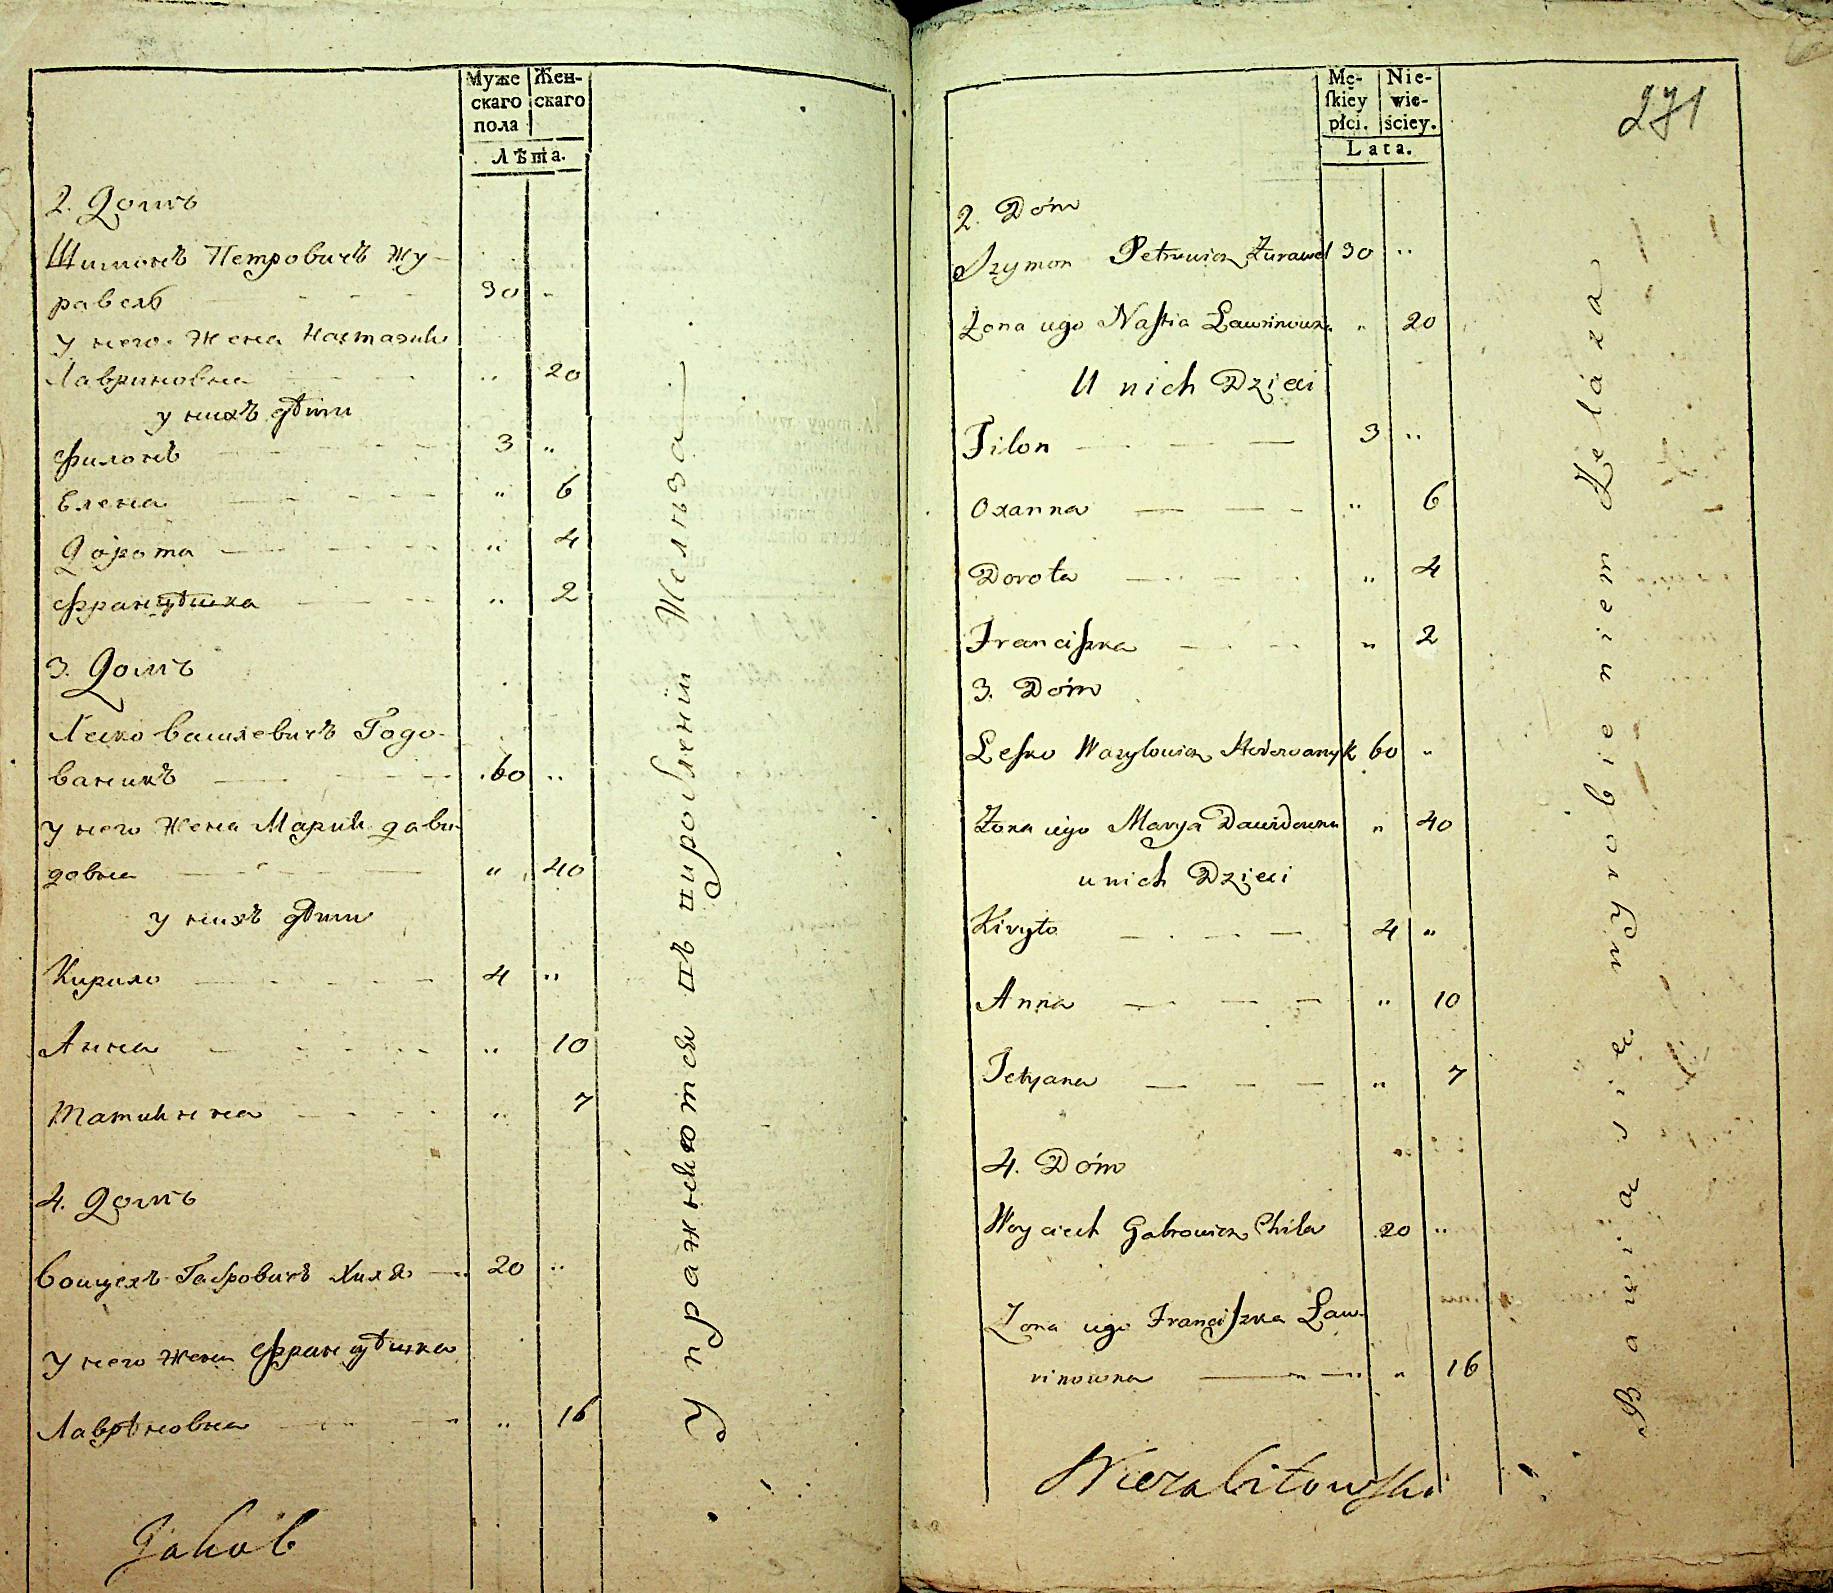 Муже
скаго
пола
Жен-
скаго
Лѣта.
2. Домъ
Шимонъ Петровичъ Жу-
равель 30 „
у него Жена Настазия
Лавриновна „ 20
у нихъ дѣти
Филонъ 3 „
Елена „ 6
Дорота „ 4
Францѣшка „ 2
3. Домъ
Леско Василевичъ Годо-
ваникъ 60 „
у него Жена Мария Дави-
довна „ 40
у нихъ дѣти
Кирило 4 „
Анна „ 10
Татиянна „ 7
4. Домъ
Войцехъ Габровичъ Хиля 20 „
У него Жена Францѣшка
Лаврѣновна „ 16
Упражняются въ виробленіи Желѣза
Jakób
Mę-
ſkiéy
płci.
Nie-
wie-
ściey.
Lata.
271
2. Dóm
Szymon Petrowicz Żurawel 30 „
Żona iego Naſtia Ławrinowna „ 20
U nich Dzieci
Filon 3 „
Oxanna „ 6
Dorota „ 4
Franciſzka „ 2
3. Dóm
Leſko Wazylowicz Hodowanyk 60 „
Żona iego Marya Dawidowna „ 40
u nich Dzieci
Kiryło 4 „
Anna „ 10
Tetyana „ 7
4. Dóm
Woyciech Gabrowicz Chila 20 „
Żona iego Franciſzka Ław-
rinowna „ 16
Bawią się wyrobieniem Żeláza
Niezabitowſki